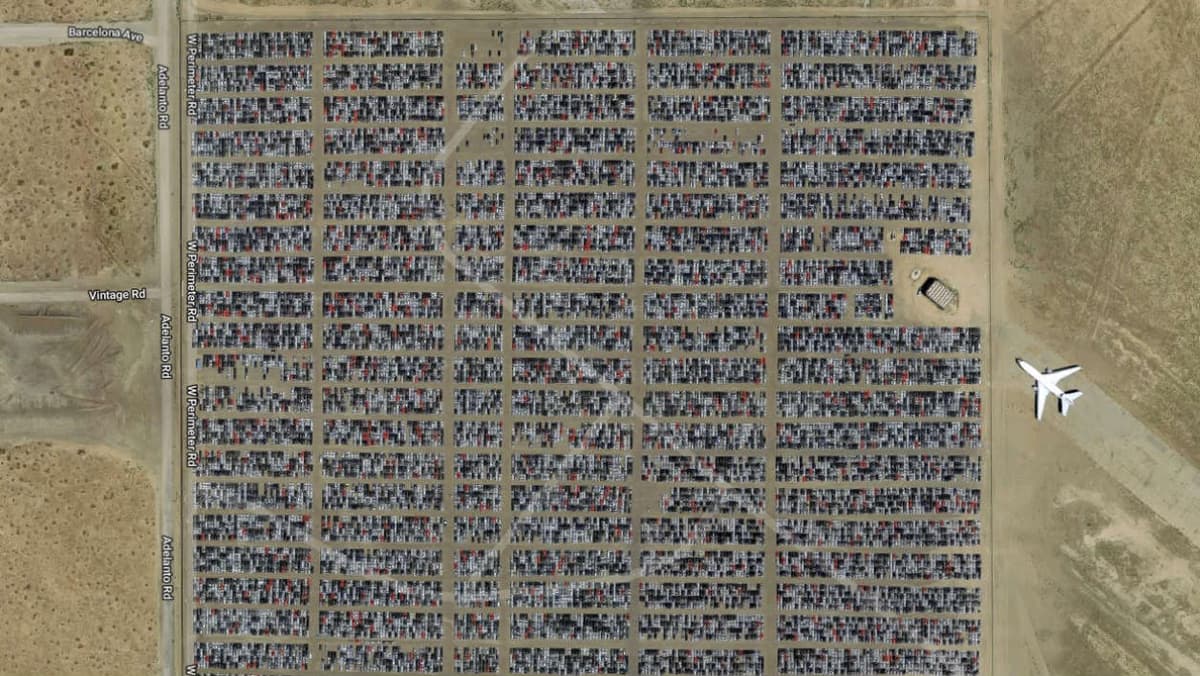 Barcelona Ave
W Perimeter Rd
Adelanto Rd
W Perimeter Rd
Vintage Rd
Adelanto Rd
W Perimeter Rd
Adelanto Rd
W